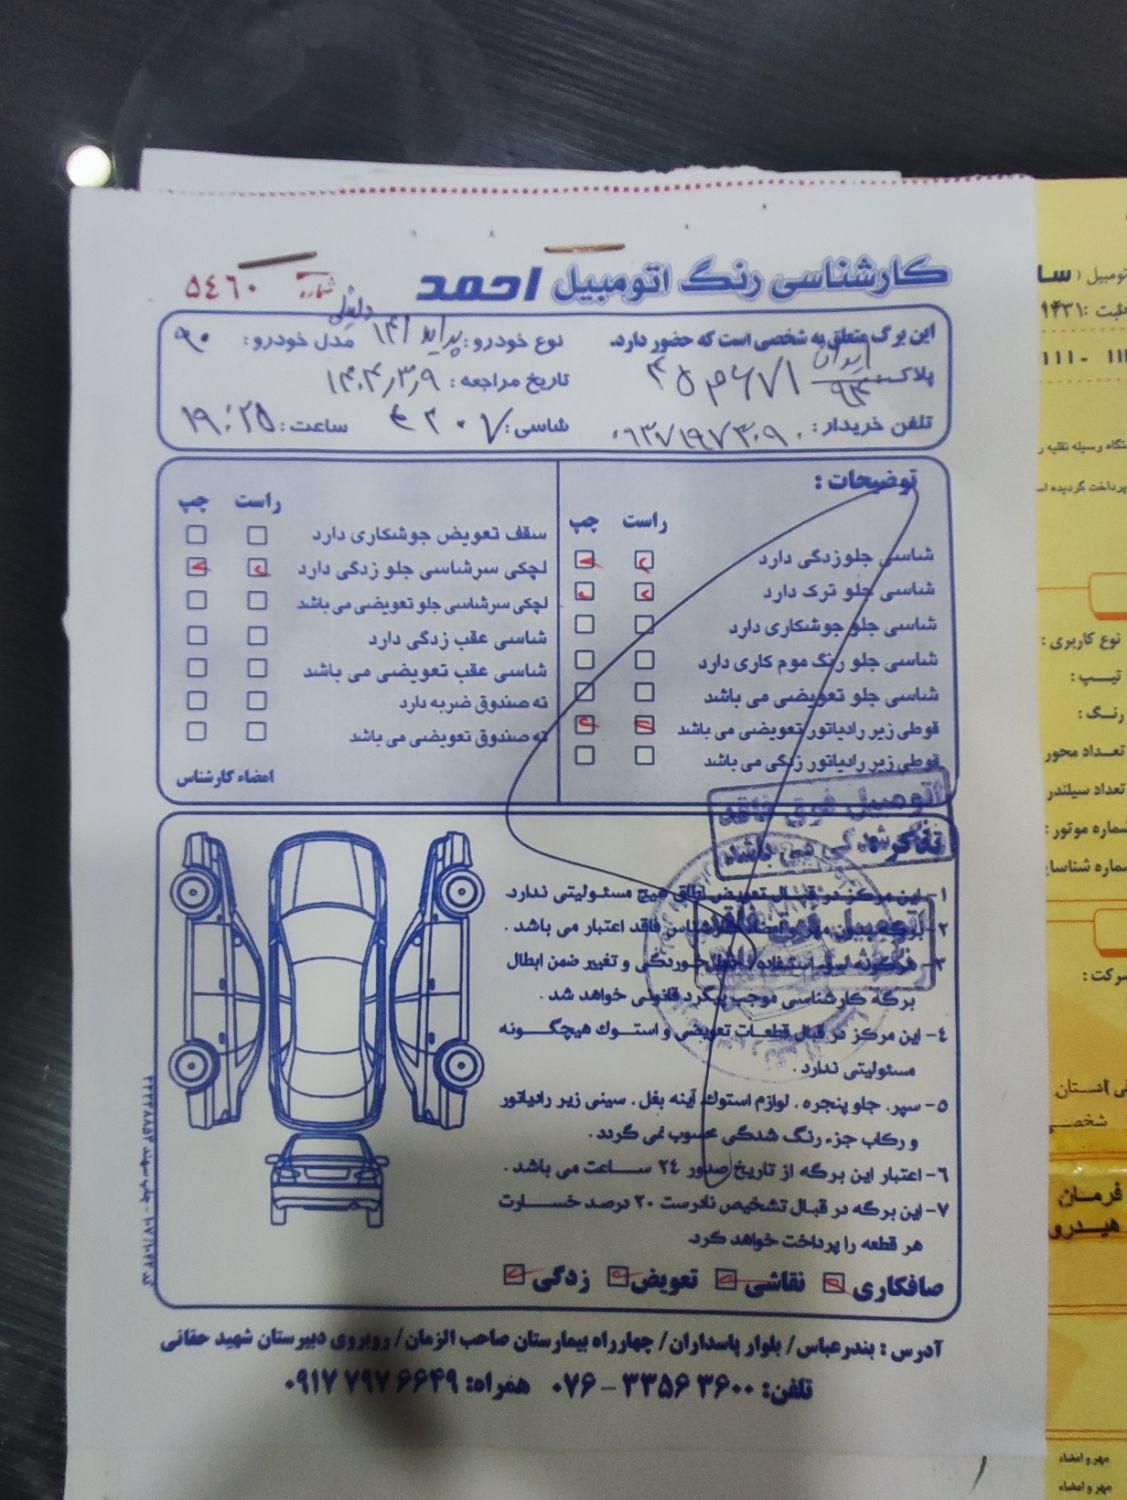 کارشناسی رنگ اتومبیل احمد
شماره ۵۴۶۰
این برگ متعلق به شخصی است که حضور دارد.
نوع خودرو: پراید ۱۴۱ مدل خودرو: ۹۰
پلاک: ایران ۹۴ ۶۷۱ م ۴۵
تاریخ مراجعه: ۱۴۰۴/۳/۹
تلفن خریدار: ۰۹۳۷۱۹۷۳۰۹۰
شاسی: ساعت: ۱۹:۲۵
توضیحات:
راست چپ
شاسی جلوزدگی دارد
شاسی جلو ترک دارد
شاسی جلو جوشکاری دارد
شاسی جلو رنگ موم کاری دارد
شاسی جلو تعویضی می باشد
قوطی زیر رادیاتور تعویضی می باشد
قوطی زیر رادیاتور زدگی می باشد
راست چپ
سقف تعویض جوشکاری دارد
لچکی سرشاسی جلو زدگی دارد
لچکی سرشاسی جلو تعویضی می باشد
شاسی عقب زدگی دارد
شاسی عقب تعویضی می باشد
ته صندوق ضربه دارد
ته صندوق تعویضی می باشد
امضاء کارشناس
اتومبیل فوق فاقد
تذکر
۱- این مرکز در قبال تعویض اطاق هیچ مسئولیتی ندارد.
۲- برگه بدون مهر و امضاء کارشناس فاقد اعتبار می باشد.
۳- هرگونه سوء استفاده خط خوردگی و تغییر ضمن ابطال
برگه کارشناسی موجب پیگرد قانونی خواهد شد.
۴- این مرکز در قبال قطعات تعویضی و استوک هیچگونه
مسئولیتی ندارد.
۵- سپر. جلو پنجره. لوازم استوک. آینه بغل. سینی زیر رادیاتور
و رکاب جزء رنگ شدگی محسوب نمی گردد.
۶- اعتبار این برگه از تاریخ صدور ۲۴ ساعت می باشد.
۷- این برگه در قبال تشخیص نادرست ۲۰ درصد خسارت
هر قطعه را پرداخت خواهد کرد.
صافکاری نقاشی تعویض زدگی
آدرس: بندرعباس/ بلوار پاسداران/ چهارراه بیمارستان صاحب الزمان/ روبروی دبیرستان شهید حقانی
تلفن: ۳۶۰۰ ۳۳۵۶ - ۰۷۶ همراه: ۶۶۴۹ ۷۹۷ ۰۹۱۷
نوع کاربری:
تیپ:
رنگ:
تعداد محور
تعداد سیلندر
شماره موتور:
فرمان
هیدرو
مهر و امضاء
مهر و امضاء